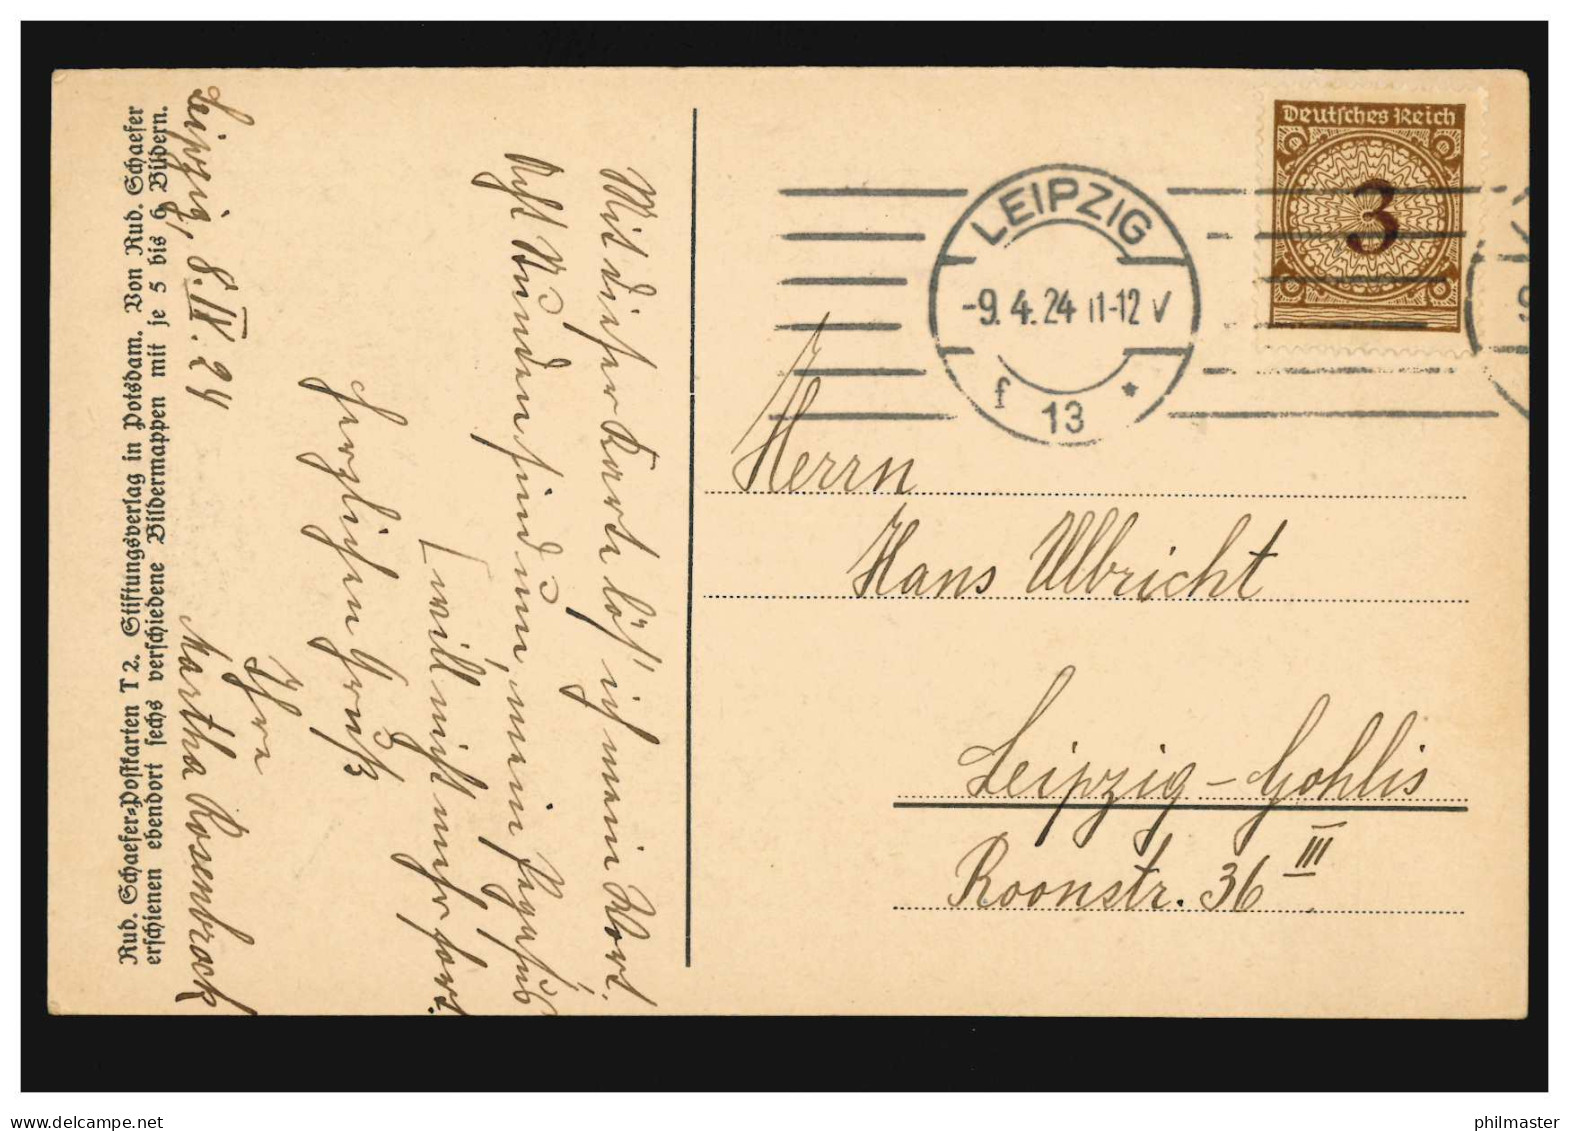 Rud. Schaefer-Postkarten T 2. Stiftungsverlag in Potsdam. Von Rud. Schaefer
erschienen ebendort sechs verschiedene Bildermappen mit je 5 bis 6 Bildern.
Leipzig, 8.IV.24
Mit dieser Karte lös' ich mein Wort.
Acht Stunden sind um, mein Pegasus
will nicht mehr fort
Herzlichen Gruß
Ihre
Martha Rosenbrock
Deutsches Reich
3
LEIPZIG
-9.4.24 11-12 V
f 13 *
9
Herrn
Hans Ulbricht
Leipzig-Gohlis
Roonstr. 36 III
www.delcampe.net
philmaster